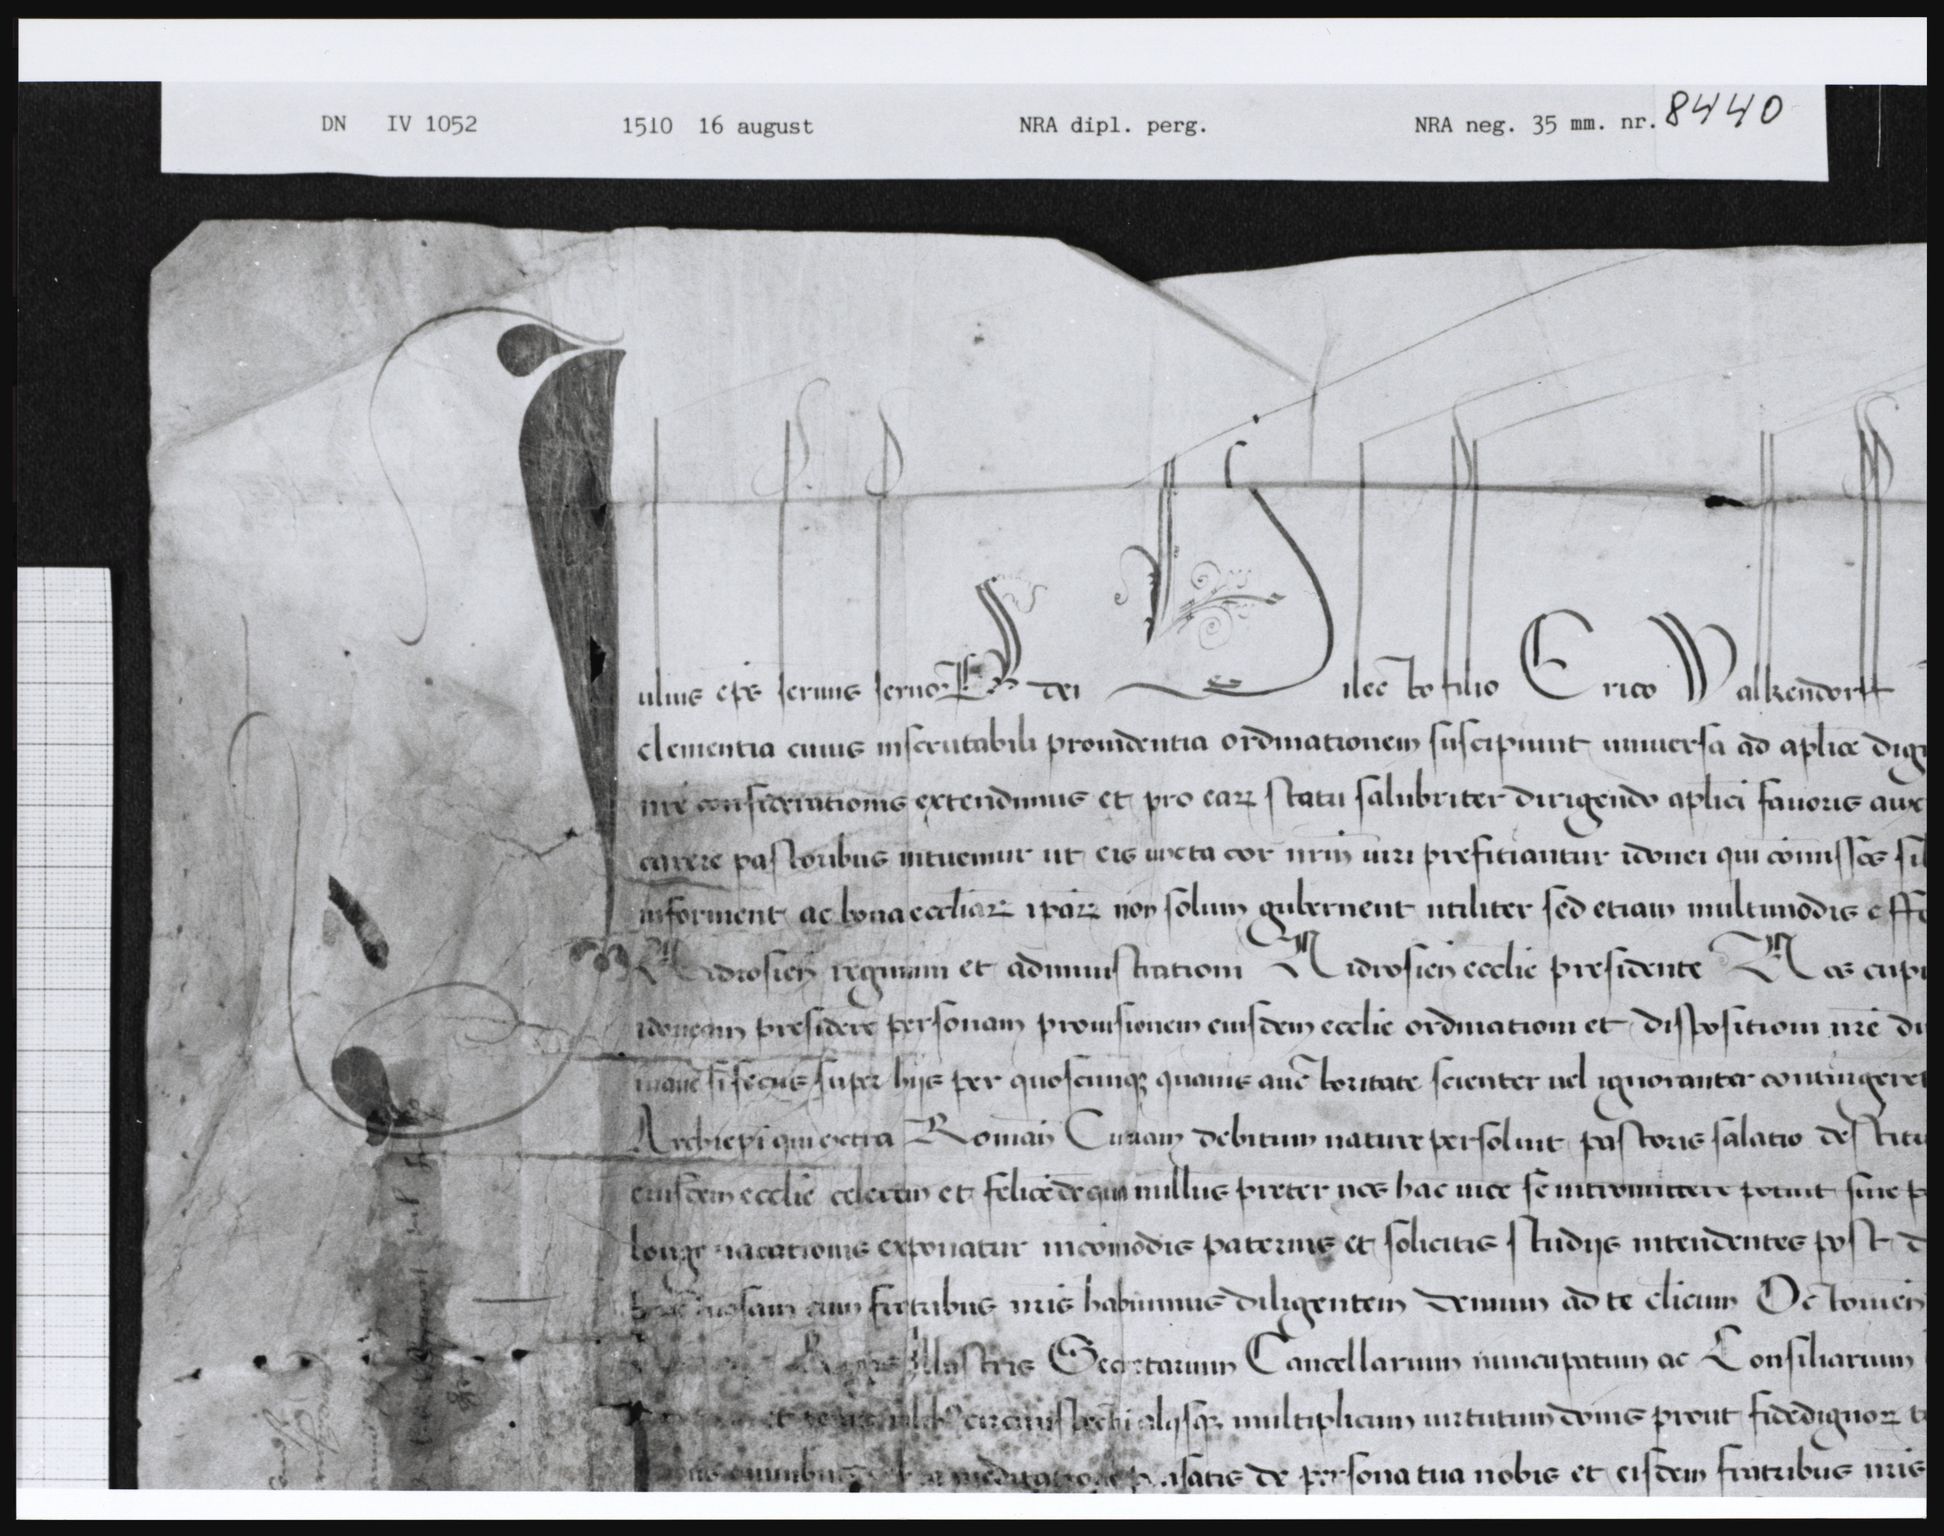 DN IV 1052 1510 16 august NRA dipl. perg. NRA neg. 35 mm. nr. 8440
Iulius ep̄s seruus seruoꝝ dei Dilecto filio Erico Walkendorff
clementia cuius inscrutabili prouidentia ordinationem suscipiunt uniuersa ad aplice
nr̄e considerationis extendimus et pro eaꝝ statu salubriter dirigendo aplici fauoris
carere pastoribus intuemur ut eis iuxta cor nrm̄ uiri prefitiantur idonei qui com̄issos
informent ac bona eccliaꝝ ipaꝝ non solum gubernent utiliter sed etiam multimodis
Nidrosien̄ regimini et administrationi Nidrosien̄ ecclie presidente Nos
idoneam presidere personam prouisionem eiusdem ecclie ordinationi et dispositioni nr̄e
inane si secus super hijs per quoscunqꝫ quauis auctoritate scienter uel ignoranter contingeret
Archiepi qui extra Roman̄ Curiam debitum nature persoluit pastoris salatio
eiusdem ecclie celerem et felicē de qua nullus preter nos hac uice se intromittere potuit siue
longe uacationis exponatur incom̄odis paternis et solicitis studijs intendentes post
cum fratribus nr̄is habuimus diligentem demum ad te clicum Octonien̄
Regis Illustris Secretarium Cancellarium nuncupatum ac Consiliarium
et circumspecti alijsqꝫ multiplicum uirtutum donis prout fidedignoꝝ
omnibus meditatione pensatis de persona tua nobis et eisdem fratribus nr̄is